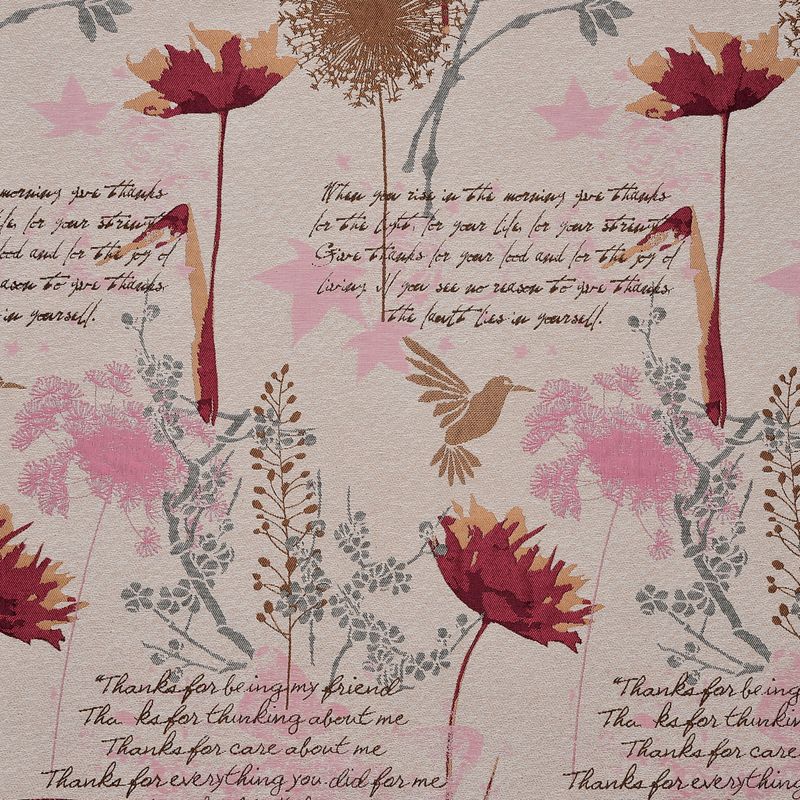 morning give thanks
life, for your strength
food and for the joy of
reason to give thanks
in yourself.
When you rise in the morning give thanks
for the light, for your life, for your strength
Give thanks for your food and for the joy of
living If you see no reason to give thanks
the fault lies in yourself.
"Thanks for being my friend
Tha ks for thinking about me
Thanks for care about me
Thanks for everything you did for me
"Thanks for being
Tha ks for thinkin
Thanks for care
Thanks for everything